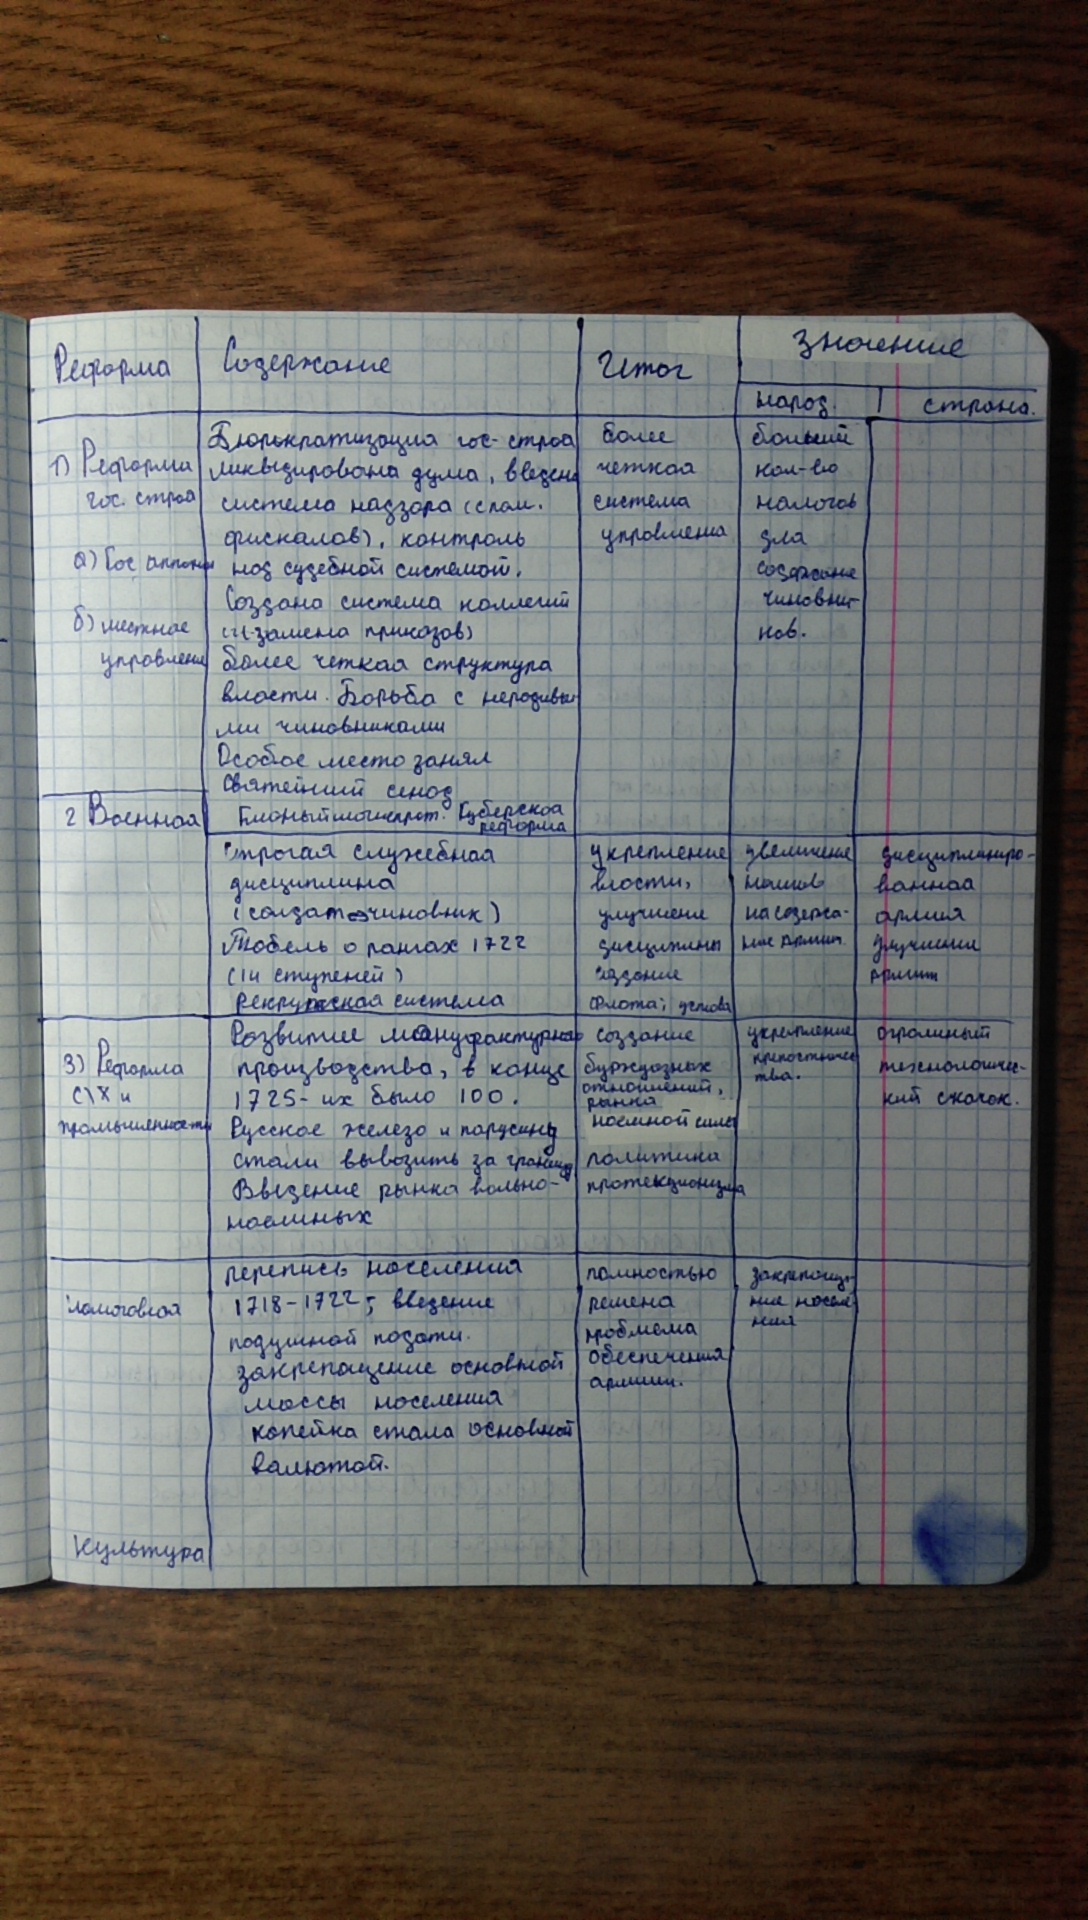 Реформа
Содержание
Итог
Значение
народ.
страна.
1) Реформа
гос. строя
а) Гос
б) местное
Бюрократизация гос-строя
ликвидирована дума, введена
система надзора (
фискалов), контроль
над судебной системой.
Создана система коллегий
замена приказов)
более четкая структура
власти. Борьба с
ми чиновниками
Особое место занял
Святейший синод
Губерская
реформа
более
четкая
система
управления
больший
кол-во
налогов
для
чиновни-
ков.
2 Военная
Строгая служебная
дисциплина
(солдат=чиновник)
Табель о рангах 1722
(14 ступеней)
рекрутская система
укрепление
власти,
улучшение
дисциплины
флота;
увеличение
на содержа-
ние армии
дисциплиниро-
ванная
армия
улучшение
армии
3) Реформа
С\Х и
промышленности
Развитие мануфактурного
производства, в конце
1725- их было 100.
Русское железо и парусину
стали вывозить за границу
Введение рынка вольно-
наемных
создание
буржуазных
отношений,
рынка
наемной силы
политика
протекционизма
укрепление
крепостничес
тва.
огромный
технологичес-
кий скачок.
Налоговая
перепись населения
1718-1722; введение
подушной подати.
закрепощение основной
массы населения
копейка стала основной
валютой.
полностью
решена
проблема
обеспечения
армии.
закрепоще-
ние населе
ния
Культура